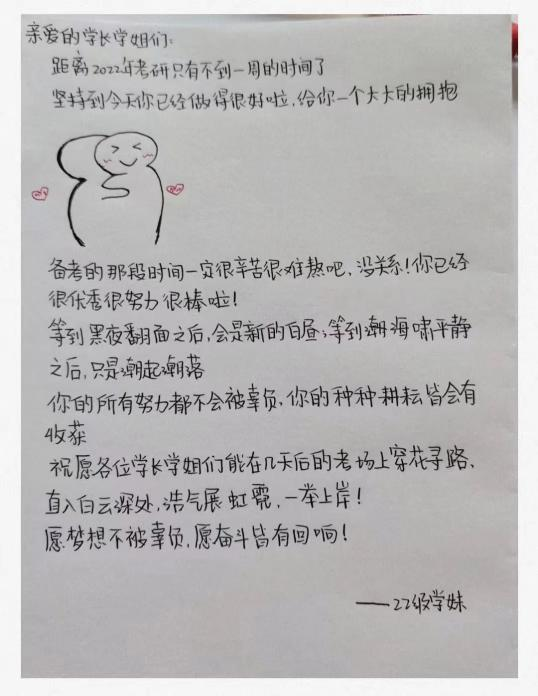 亲爱的学长学姐们:
距离2022年考研只有不到一周的时间了
坚持到今天你已经做得很好啦,给你一个大大的拥抱
备考的那段时间一定很辛苦很难熬吧,没关系!你已经
很优秀很努力很棒啦!
等到黑夜翻面之后,会是新的白昼;等到潮海啸平静
之后,只是潮起潮落
你的所有努力都不会被辜负,你的种种耕耘皆会有
收获
祝愿各位学长学姐们能在几天后的考场上穿花寻路,
直入白云深处,浩气展虹霓,一举上岸!
愿梦想不被辜负,愿奋斗皆有回响!
——22级学妹